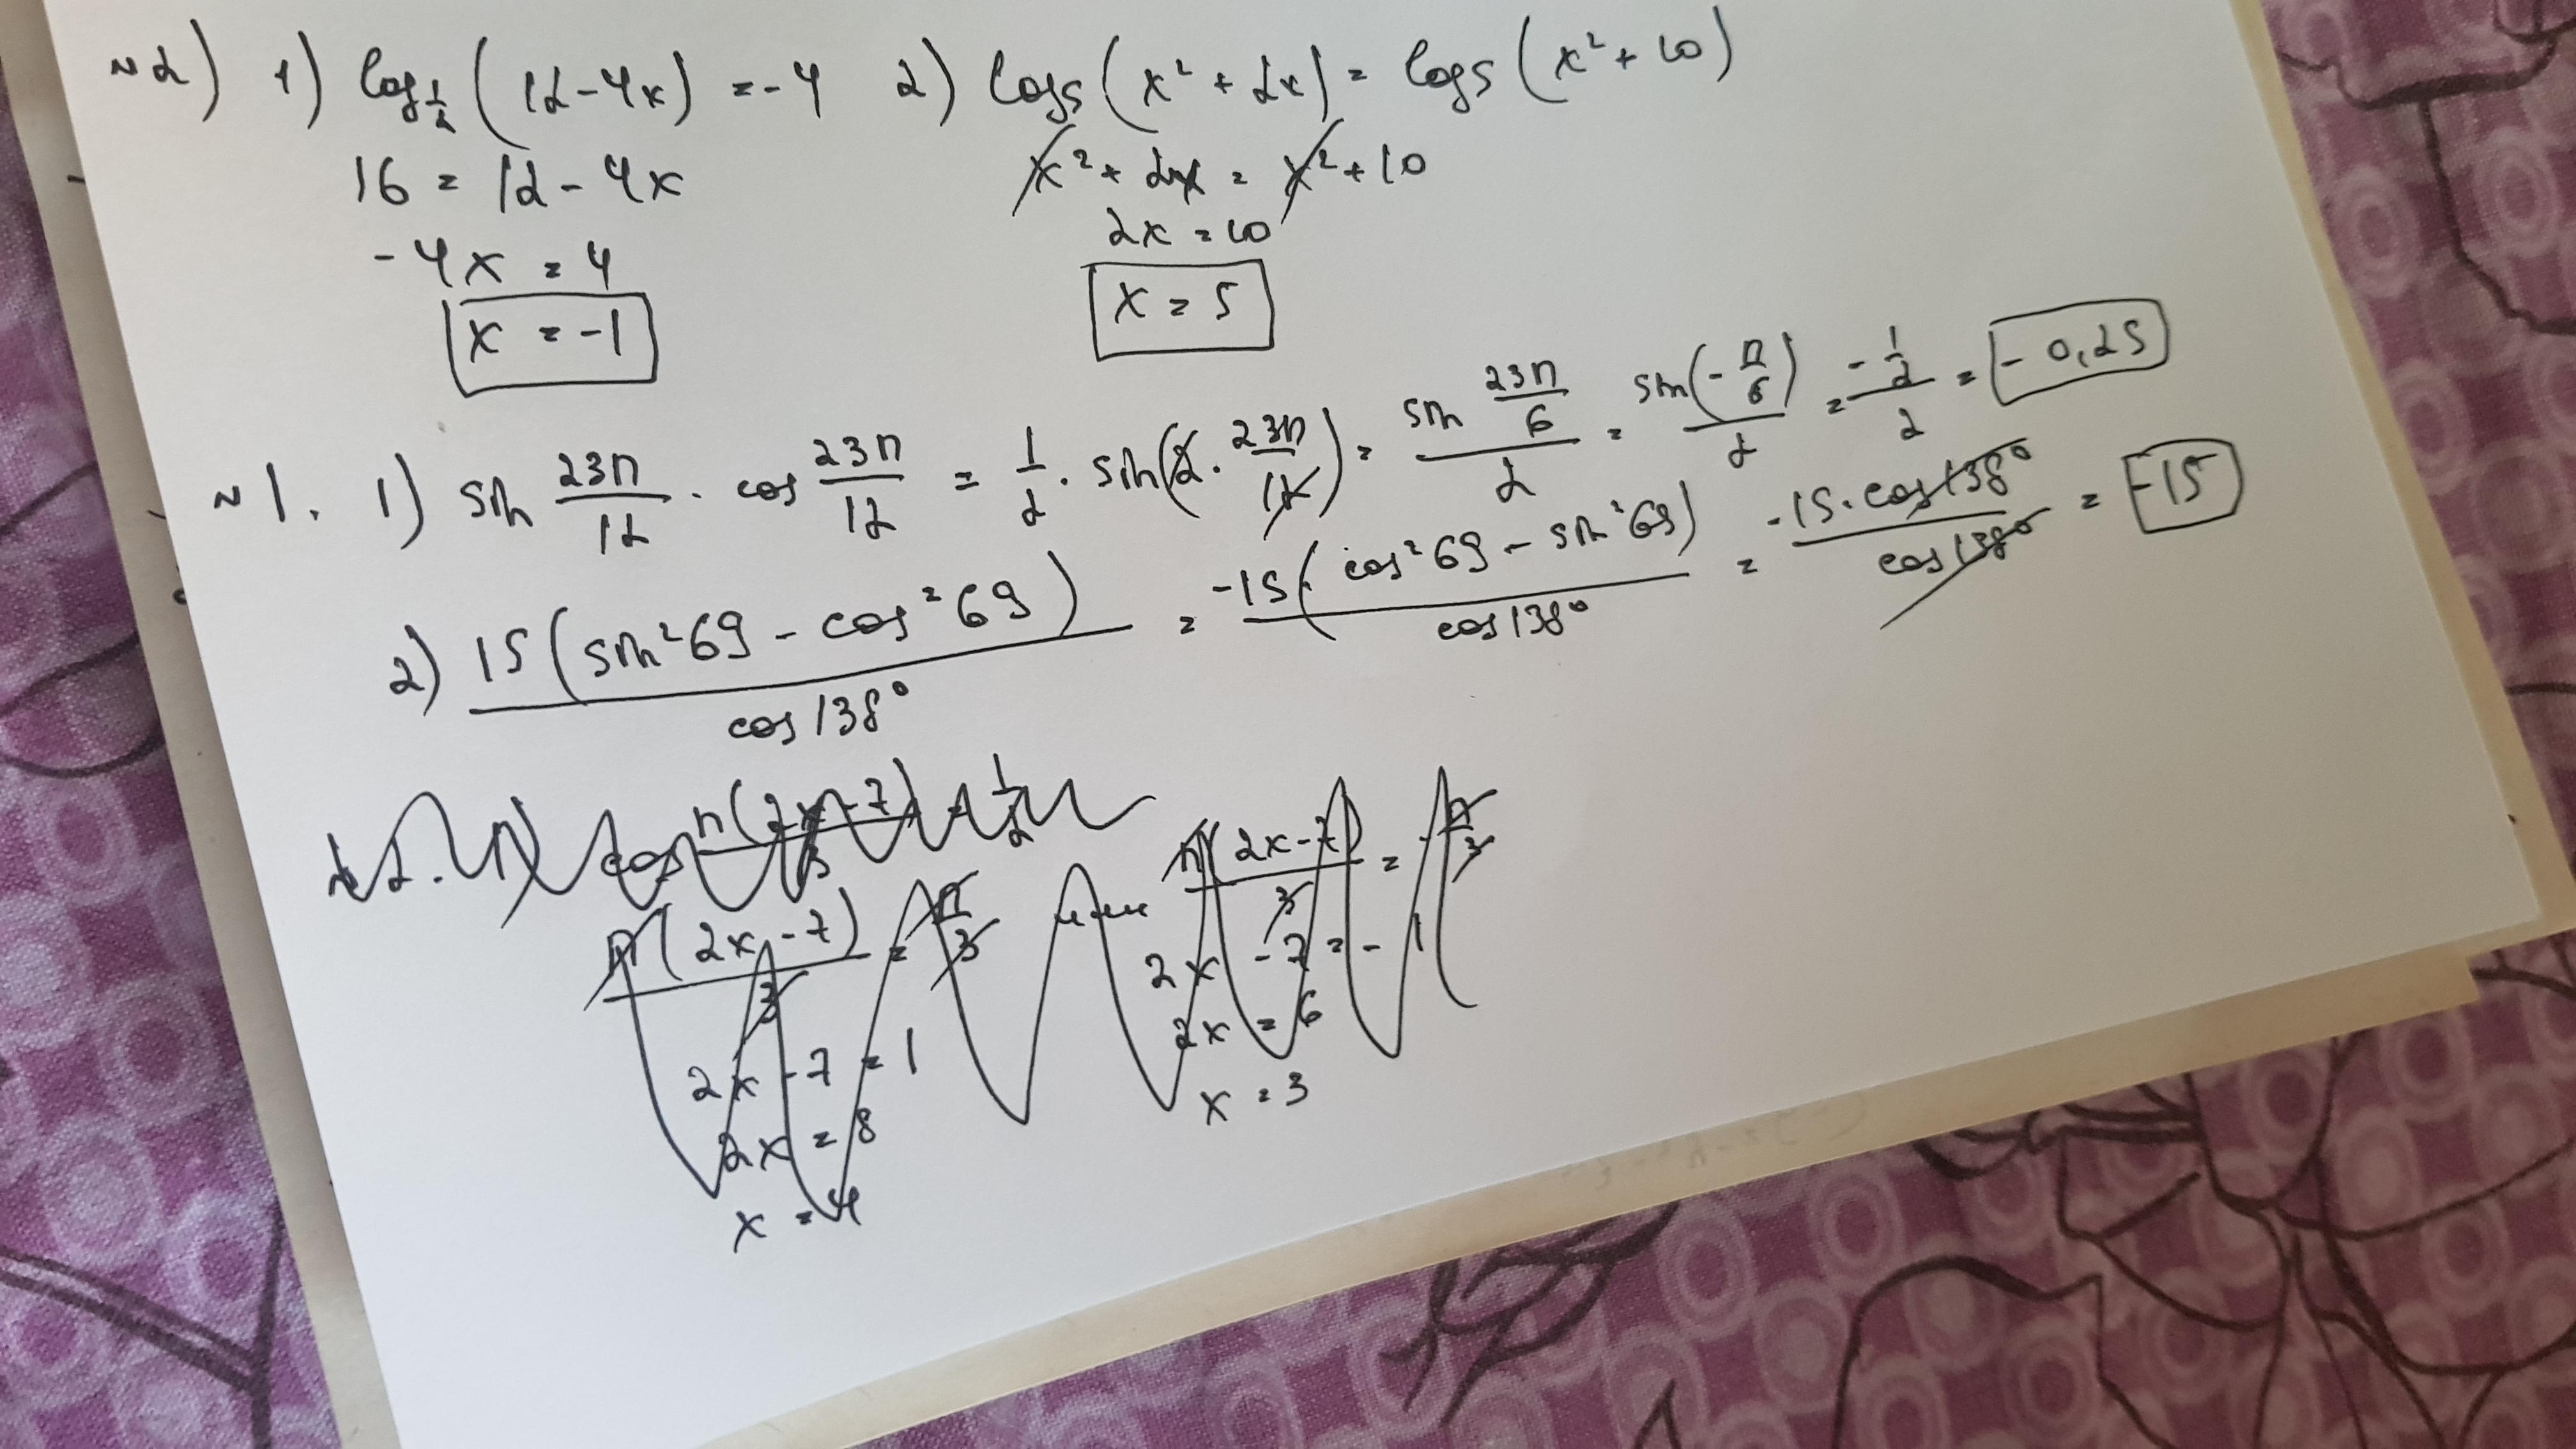 N2) 1) log_{1/2} (12-4x) = -4   2) log5 (x² + 2x) = log5 (x² + 10)
16 = 12 - 4x   x² + 2x = x² + 10
-4x = 4   2x = 10
x = -1   x = 5
N1. 1) sin 23π/12 · cos 23π/12 = 1/2 · sin(2 · 23π/12) = (sin 23π/6)/2 = (sin(-π/6))/2 = (-1/2)/2 = -0,25
2) 15(sin²69 - cos²69)/cos138° = -15(cos²69 - sin²69)/cos138° = -15·cos138°/cos138° = -15
N2. 1) cos π(2x-7)/3 = 1/2
π(2x-7)/3 = π/3 или π(2x-7)/3 = -π/3
2x-7 = 1   2x - 7 = -1
2x = 8   2x = 6
x = 4   x = 3